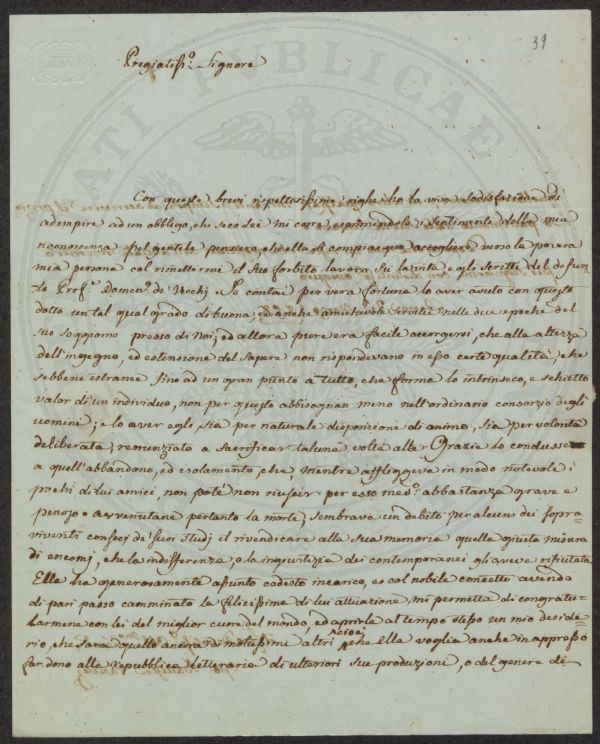 39
Pregiatiss.º Signore
Con queste brevi rispettosissime righe ho la viva sodisfazione di
adempire ad un obbligo, che seco Lei mi corre, esprimendole i sentimenti della mia
riconoscenza pel gentile pensiero, ch'ella si compiacque accogliere verso la povera
mia persona col rimetterme il Suo forbito lavoro su la vita e gli scritti del defun
to Prof.r Domen.º de' Vecchj. Io contai per vera fortuna lo aver avuto con questo
dotto un tal qual grado di buona, ed anche amichevole servitù nelle due epoche del
suo soggiorno presso di Noi; ed allora pure era facile accorgersi, che alla altezza
dell'ingegno, ed estensione del sapere non rispondevano in esso certe qualità, che
sebbene estranee fino ad un gran punto a tutto, che forma lo intrinseco, e schietto
valor di un individuo, non per questo abbisognan meno nell'ordinario consorzio degli
uomini; e lo aver egli, sia per naturale disposizione di animo, sia per volontà
deliberata, renunziato a sacrificar talune volte alle Grazie lo condusse
a quell'abbandono, ed isolamento, che, mentre affliggeva in modo notevole i
pochi di lui amici, non potè non riuscir per esso med.º abbastanza grave e
penoso. Avvenutane pertanto la morte, sembrava un debito per alcuni dei sopra-
viventi consecj de' suoi studj il rivendicare alla sua memoria quella giusta misura
di encomj, che la indifferenza, o la ingiustizia dei contemporanei gli aveve rifiutata
Ella ha generosamente assunto codesto incarico, e col nobile concetto avendo
di pari passo camminato la felicissima di lui attuazione, mi permetta di congratu-
larmene con lei del miglior cuore del mondo, ed aprirle al tempo stesso un mio deside
rio, che sarà quello ancora di moltissimi altri, cioè che Ella voglia anche in appresso
far dono alla Repubblica letteraria di ulteriori sue produzioni, o del genere di